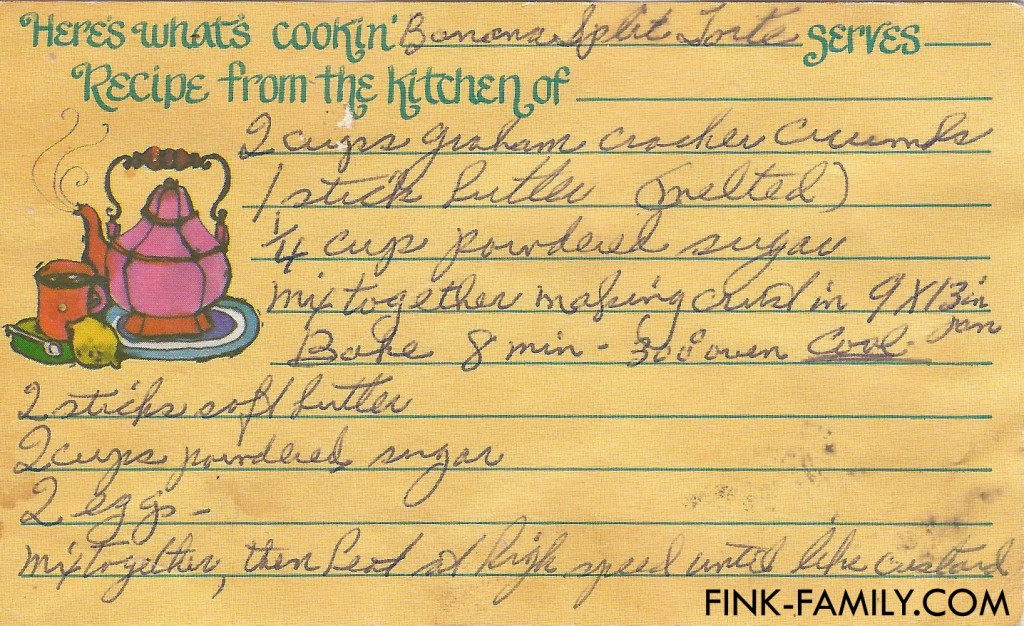 Here's what's cookin' Banana Split Torte serves
Recipe from the kitchen of
2 cups graham cracker crumbs
1 stick butter (melted)
1/4 cup powdered sugar
mix together making crust in 9X13 in
pan
Bake 8 min - 300° oven Cool.
2 sticks soft butter
2 cups powdered sugar
2 eggs -
mix together, then beat at high speed until like custard
FINK-FAMILY.COM